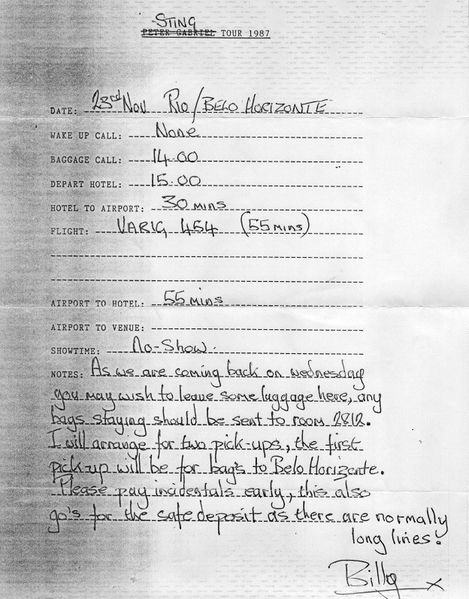 STING
PETER GABRIEL TOUR 1987
DATE: 23rd Nov Rio/BELO HORIZONTE
WAKE UP CALL: None
BAGGAGE CALL: 14.00
DEPART HOTEL: 15.00
HOTEL TO AIRPORT: 30 mins
FLIGHT: VARIG 454 (55 mins)
AIRPORT TO HOTEL: 55 mins
AIRPORT TO VENUE:
SHOWTIME: No-Show.
NOTES: As we are coming back on wednesday
you may wish to leave some luggage here, any
bags staying should be sent to room 2812.
I will arrange for two pick-ups, the first
pick-up will be for bag's to Belo Horizonte.
Please pay incidentals early, this also
go's for the safe deposit as there are normally
long lines!
Billy x